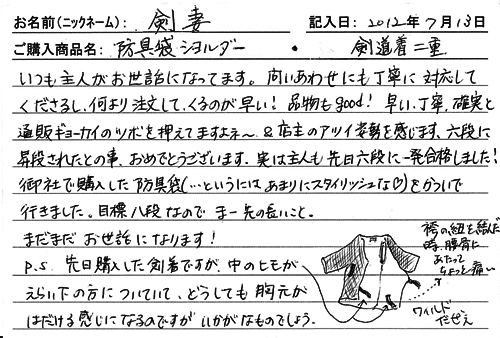 お名前(ニックネーム): 剣妻 記入日: 2012年7月13日
ご購入商品名: 防具袋ショルダー ・ 剣道着二重
いつも主人がお世話になってます。問いあわせにも丁寧に対応して
くださるし、何より注文して、くるのが早い! 品物もgood! 早い、丁寧、確実と
通販ギョーカイのツボを押えてますよネ〜 & 店主のアツイ姿勢を感じます。六段に
昇段されたとの事、おめでとうございます。実は主人も先日六段に一発合格しました!
御社で購入した防具袋(…というにはあまりにスタイリッシュな♡)をかついで
行きました。目標八段なので ま一先の長いこと。
まだまだ お世話になります!
P.S. 先日購入した剣着ですが、中のヒモが
えらい下の方についていて、どうしても胸元が
はだける感じになるのですが いかがなものでしょう。
袴の紐を結んだ
時、腰骨に
あたって
ちょっと痛い
ワイルド
だぜぇ